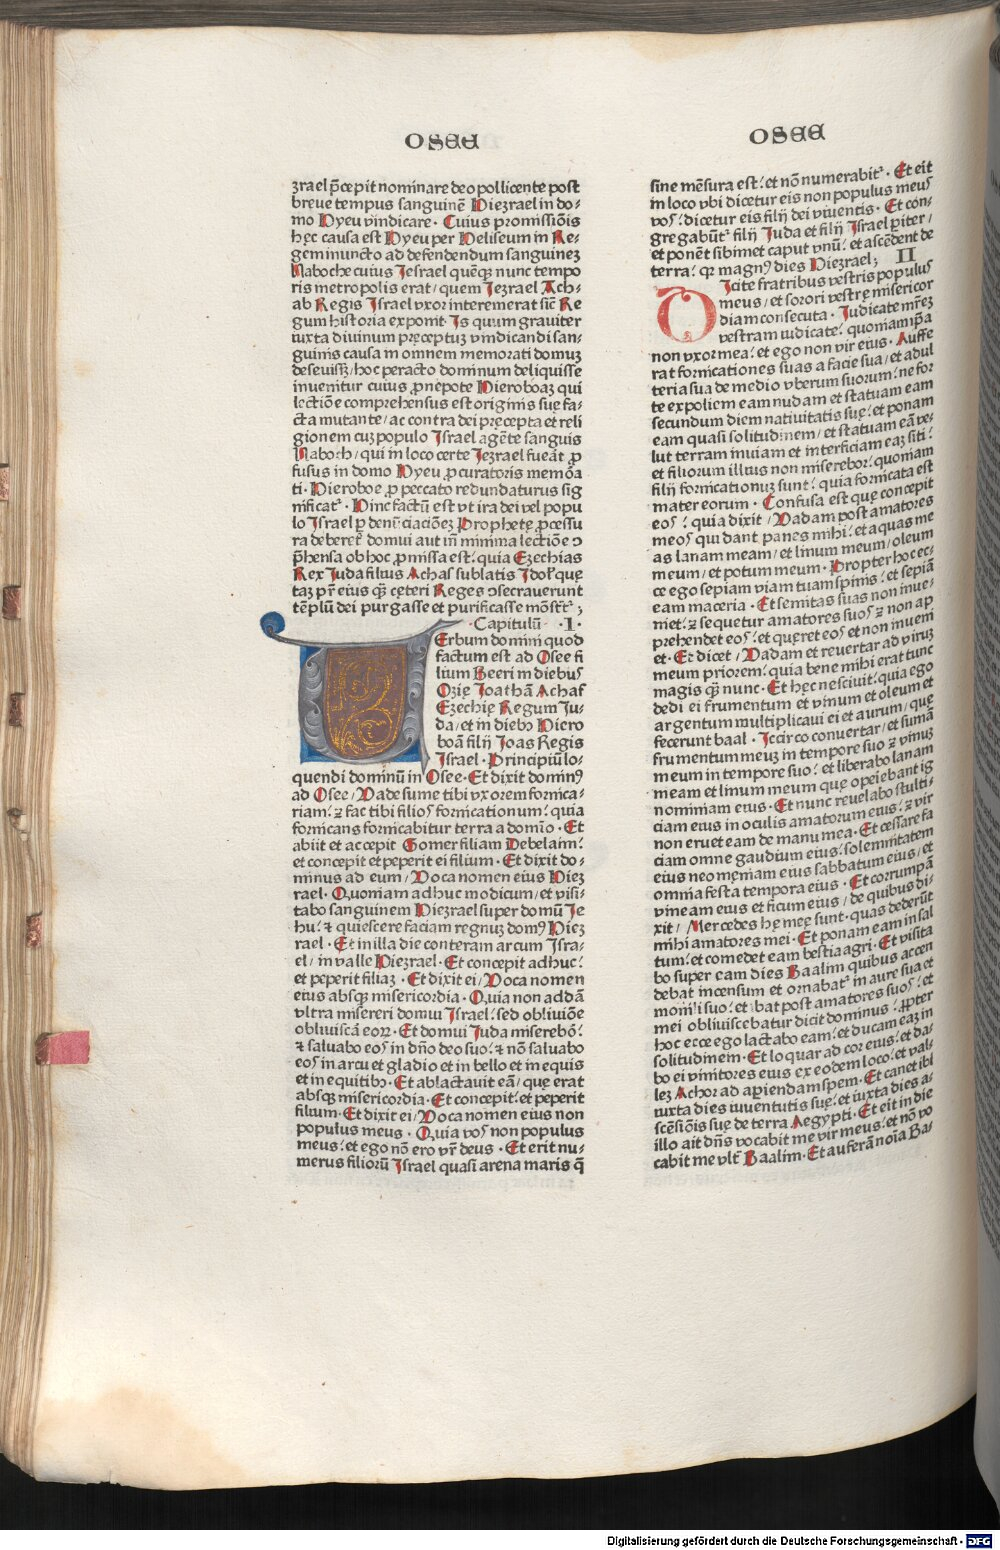 OSEE
zrael p̄cepit nominare deo pollicente post
breue tempus sanguinē Hiezrael in do-
mo Hyeu vindicare · Cuius promissiōis
hęc causa est Hyeu per Heliseum in Re-
gem inuncto ad defendendum sanguineʒ
Naboth e cuius Iesrael quēqʒ nunc tempo
ris metropolis erat/ quem Iezrael Ach-
ab Regis Israel vxor interemerat sic̄ Re
gum historia exponit· Is quum grauiter
iuxta diuinum pręceptuʒ vindicandi san-
guinis causa in omnem memorati domuʒ
deseuissʒ/ hoc peracto dominum deliquisse
inuenitur cuius ꝓnepote Hieroboaʒ qui
lectiōe comprehensus est originis suę fa-
cta mutante/ ac contra dei pręcepta et reli
gionem cuʒ populo Israel agēte sanguis
Naboth/ qui in loco certe Iezrael fuēat ꝓ
fusus in domo Hyeu ꝓcuratoris memōa
ti· Hieroboe ꝓ peccato redundaturus sig
nificat᷑ · Hinc factū est vt ira dei vel popu
lo Israel ꝑ denūciaciōeʒ Prophetę ꝓcessu
ra deberet᷑ domui aut in minima lectiōe ↄ
p̄hensa ob hoc ꝓmissa est· quia Ezechias
Rex Iuda filius Achas sublatis Idol̕ quę
taʒ pr̄ eius qʒ cęteri Reges ↄsecrauerunt
tēplū dei purgasse et purificasse mōst᷑ ;
·Capitulū · I·
Verbum domini quod
factum est ad Osee fi
lium Beeri in diebus
Ozię Ioathā Achas
Ezechię Regum Iu-
da/ et in diebꝰ Hiero
boā filij Ioas Regis
Israel · Principiū lo-
quendi dominū in Osee· Et dixit dominꝰ
ad Osee/ Vade sume tibi vxorem fornica-
riam: ⁊ fac tibi filios fornicationum: quia
fornicans fornicabitur terra a domīo · Et
abiit et accepit Gomer filiam Debelaim:
et concepit et peperit ei filium · Et dixit do-
minus ad eum/ Voca nomen eius Hiez
rael· Quoniam adhuc modicum/ et visi-
tabo sanguinem Hiezrael super domū Ie
hu: ⁊ quiescere faciam regnuʒ domꝰ Hiez
rael · Et in illa die conteram arcum Isra-
el/ in valle Hiezrael· Et concepit adhuc:
et peperit filiaʒ · Et dixit ei/ Voca nomen
eius absqʒ misericordia · Quia non addā
vltra misereri domui Israel: sed obliuiōe
obliuiscā eoꝝ· Et domui Iuda miserebō:
⁊ saluabo eos in dn̄o deo suo: ⁊ nō saluabo
eos in arcu et gladio et in bello et in equis
et in equitibꝰ· Et ablactauit eā/ quę erat
absqʒ misericordia · Et concepit: et peperit
filium· Et dixit ei/ Voca nomen eius non
populus meus · Quia vos non populus
meus: et ego nō ero vr̄ deus · Et erit nu-
merus filiorū Israel quasi arena maris q̄
OSEE
sine mēsura est: et nō numerabit᷑ · Et eit
in loco vbi dicetur eis non populus meus
vos: dicetur eis filij dei viuentis · Et con-
gregabūt᷑ filij Iuda et filij Israel ꝑiter/
et ponēt sibimet caput vnū: et ascēdent de
terra: qꝛ magnꝰ dies Hiezrael; II
Dicite fratribus vestris populus
meus/ et sorori vestrę misericor
diam consecuta · Iudicate mr̄eʒ
vestram iudicate: quoniam ip̄a
non vxor mea: et ego non vir eius · Auffe
rat fornicationes suas a facie sua/ et adul
teria sua de medio vberum suorum: ne for
te expoliem eam nudam et statuam eam
secundum diem natiuitatis suę: et ponam
eam quasi solitudinem/ et statuam eā ve-
lut terram inuiam et interficiam eaʒ siti:
et filiorum illius non miserebor: quoniam
filij fornicationuʒ sunt: quia fornicata est
mater eorum · Confusa est quę concepit
eos : quia dixit / Vadam post amatores
meos qui dant panes mihi: et aquas me
as lanam meam/ et linum meum/ oleum
meum/ et potum meum · Propter hoc ec-
ce ego sepiam viam tuam spinis: et sepiā
eam maceria · Et semitas suas non inue-
niet: ⁊ sequetur amatores suos ⁊ non ap
prehendet eos: et quęret eos et non inueni
et· Et dicet / Vadam et reuertar ad viruʒ
meum priorem: quia bene mihi erat tunc
magis qʒ nunc · Et hęc nesciuit: quia ego
dedi ei frumentum et vinum et oleum et
argentum multiplicaui ei et aurum/ quę
fecerunt baal · Iccirco conuertar/ et sumā
frumentum meuʒ in tempore suo ⁊ vinuʒ
meum in tempore suo: et liberabo lanam
meam et linum meum quę opeiebant ig
nominiam eius · Et nunc reuelabo stulti-
ciam eius in oculis amatorum eius: ⁊ vir
non eruet eam de manu mea · Et cessare fa
ciam omne gaudium eius: solemnitatem
eius neomęniam eius sabbatum eius/ et
omnia festa tempora eius · Et corrumpā
vineam eius et ficum eius/ de quibus di-
xit/ Mercedes hę meę sunt· quas dederūt
mihi amatores mei · Et ponam eam in sal
tum: et comedet eam bestia agri · Et visita
bo super eam dies Baalim quibus accen
debat incensum et ornabat᷑ in aure sua et
monili suo: et ibat post amatores suos : et
mei obliuiscebatur dicit dominus · ꝓpter
hoc ecce ego lactabo eam: et ducam eaʒ in
solitudinem· Et loquar ad cor eius: et da-
bo ei vinitores eius ex eodem loco: et val-
leʒ Achor ad aꝑiendam spem· Et canet ibi
iuxta dies iuuentutis suę: et iuxta dies a-
scēsiōis suę de terra Aegypti· Et eit in die
illo ait dn̄s vocabit me vir meus: et nō vo
cabit me vlt᷑ Baalim· Et auferā noīa Ba-
Digitalisierung gefördert durch die Deutsche Forschungsgemeinschaft - DFG